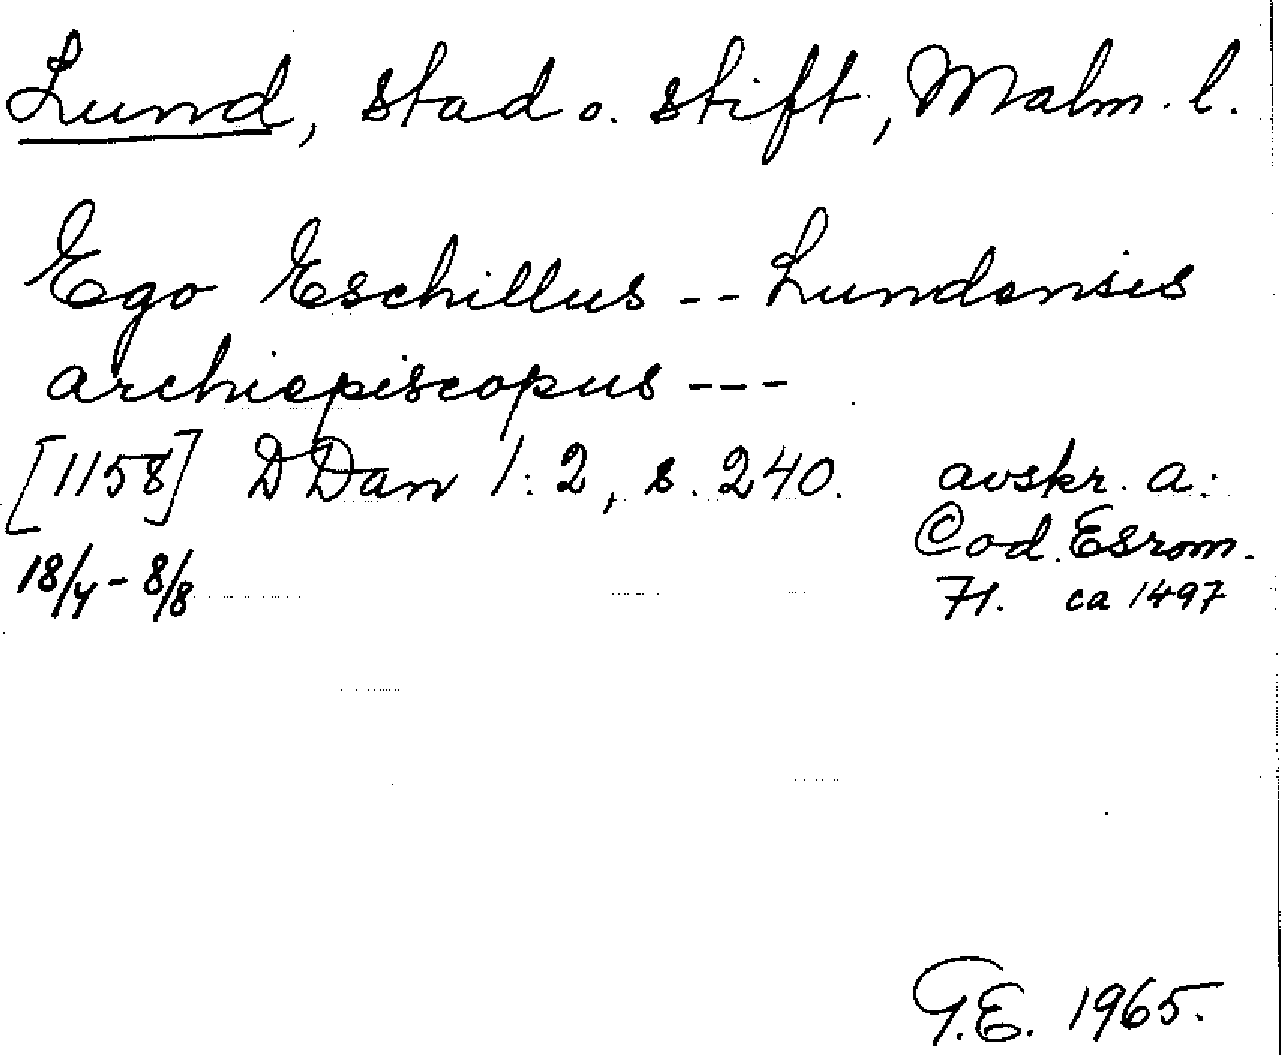 Lund, stad o. stift, Malm. l.
Ego Eschillus -- Lundensis
archiepiscopus ---
[1158] DDan 1:2, s. 240. avskr. a:
18/4 - 8/8 Cod. Esrom.
71. ca 1497
G.E. 1965.